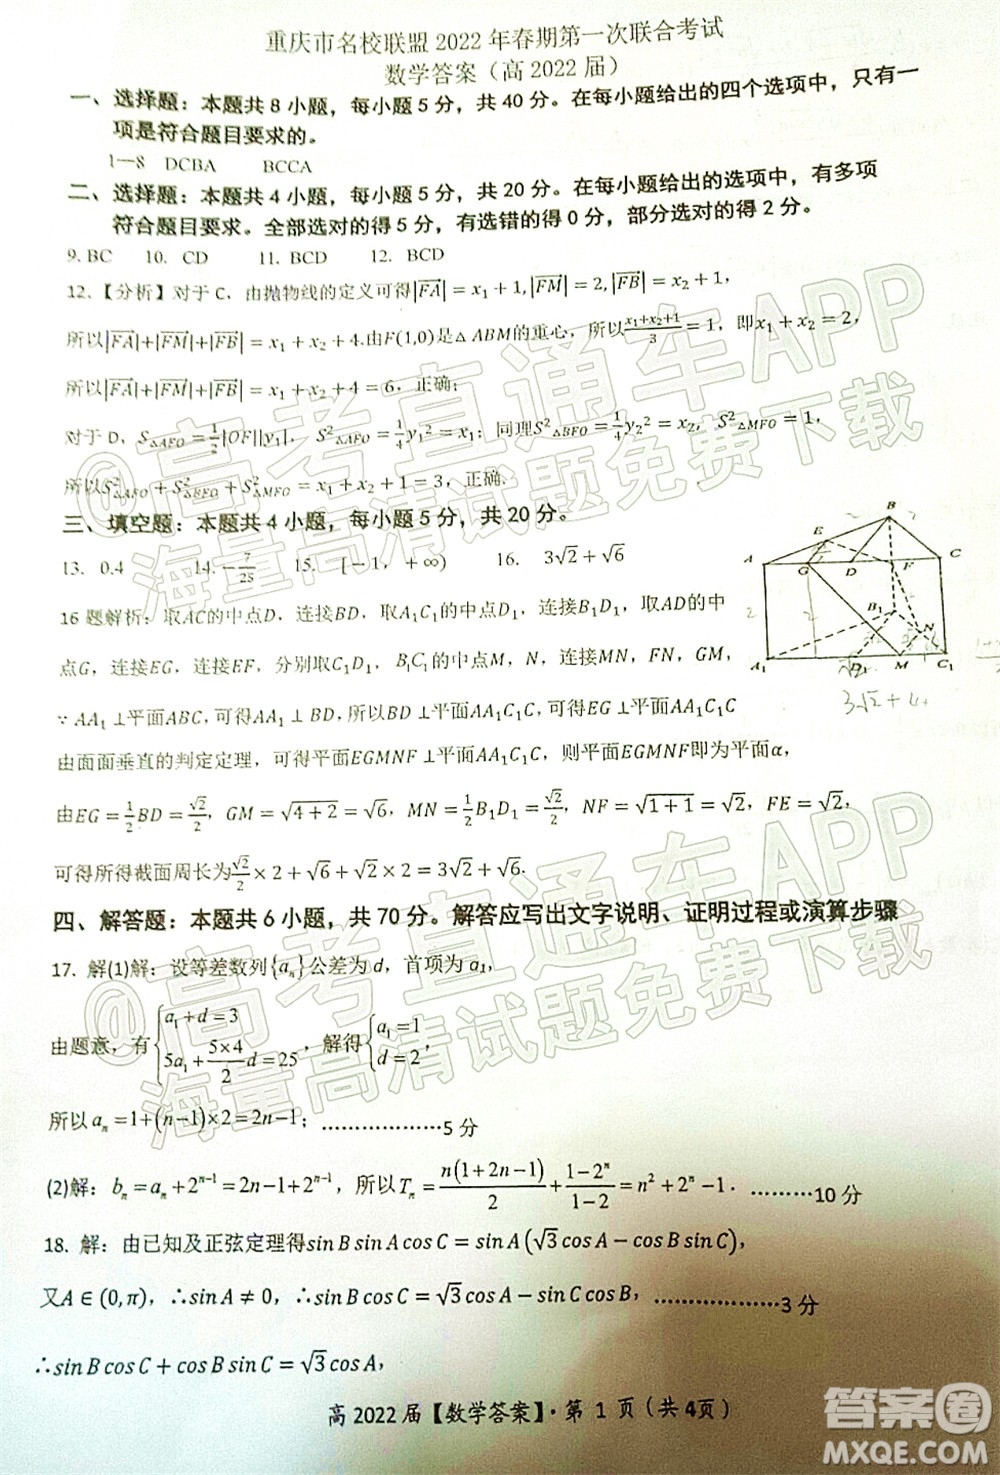 重庆市名校联盟 2022 年春期第一次联合考试
数学答案（高 2022 届）
一、选择题：本题共 8 小题，每小题 5 分，共 40 分。在每小题给出的四个选项中，只有一
项是符合题目要求的。
1—8 DCBA BCCA
二、选择题：本题共 4 小题，每小题 5 分，共 20 分。在每小题给出的选项中，有多项
符合题目要求。全部选对的得 5 分，有选错的得 0 分，部分选对的得 2 分。
9. BC 10. CD 11. BCD 12. BCD
12.【分析】对于 C，由抛物线的定义可得|FA|=x₁+1,|FM|=2,|FB|=x₂+1,
所以|FA|+|FM|+|FB|=x₁+x₂+4.由F(1,0)是△ABM的重心，所以(x₁+x₂+1)/3=1，即x₁+x₂=2,
所以|FA|+|FM|+|FB|=x₁+x₂+4=6，正确；
对于 D，S△AFO=1/2|OF||y₁|，S²△AFO=1/4y₁²=x₁；同理S²△BFO=1/4y₂²=x₂，S²△MFO=1，
所以S²△AFO+S²△BFO+S²△MFO=x₁+x₂+1=3，正确.
三、填空题：本题共 4 小题，每小题 5 分，共 20 分。
13. 0.4 14. -7/25 15. [-1，+∞) 16. 3√2+√6
16 题解析：取AC的中点D，连接BD，取A₁C₁的中点D₁，连接B₁D₁，取AD的中
点G，连接EG，连接EF，分别取C₁D₁，B₁C₁的中点M，N，连接MN，FN，GM，
∵AA₁⊥平面ABC，可得AA₁⊥BD，所以BD⊥平面AA₁C₁C，可得EG⊥平面AA₁C₁C
由面面垂直的判定定理，可得平面EGMNF⊥平面AA₁C₁C，则平面EGMNF即为平面α，
由EG=1/2BD=√2/2，GM=√(4+2)=√6，MN=1/2B₁D₁=√2/2，NF=√(1+1)=√2，FE=√2，
可得所得截面周长为√2/2×2+√6+√2×2=3√2+√6.
A B C D E F G A₁ B₁ C₁ D₁ M N
3√2+
四、解答题：本题共 6 小题，共 70 分。解答应写出文字说明、证明过程或演算步骤
17. 解(1)解：设等差数列{aₙ}公差为 d，首项为 a₁，
由题意，有{a₁+d=3 5a₁+(5×4)/2 d=25，解得{a₁=1 d=2，
所以 aₙ=1+(n-1)×2=2n-1；………………5 分
(2)解：bₙ=aₙ+2ⁿ⁻¹=2n-1+2ⁿ⁻¹，所以Tₙ=n(1+2n-1)/2+(1-2ⁿ)/(1-2)=n²+2ⁿ-1．…………10 分
18. 解：由已知及正弦定理得sinBsinAcosC=sinA(√3cosA-cosBsinC)，
又A∈(0,π)，∴sinA≠0，∴sinBcosC=√3cosA-sinCcosB，…………………3 分
∴sinBcosC+cosBsinC=√3cosA，
高 2022 届【数学答案】· 第 1 页（共 4页）
@高考直通车APP
海量高清试题免费下载
@高考直通车APP
海量高清试题免费下载
答案圈
MXQE.COM